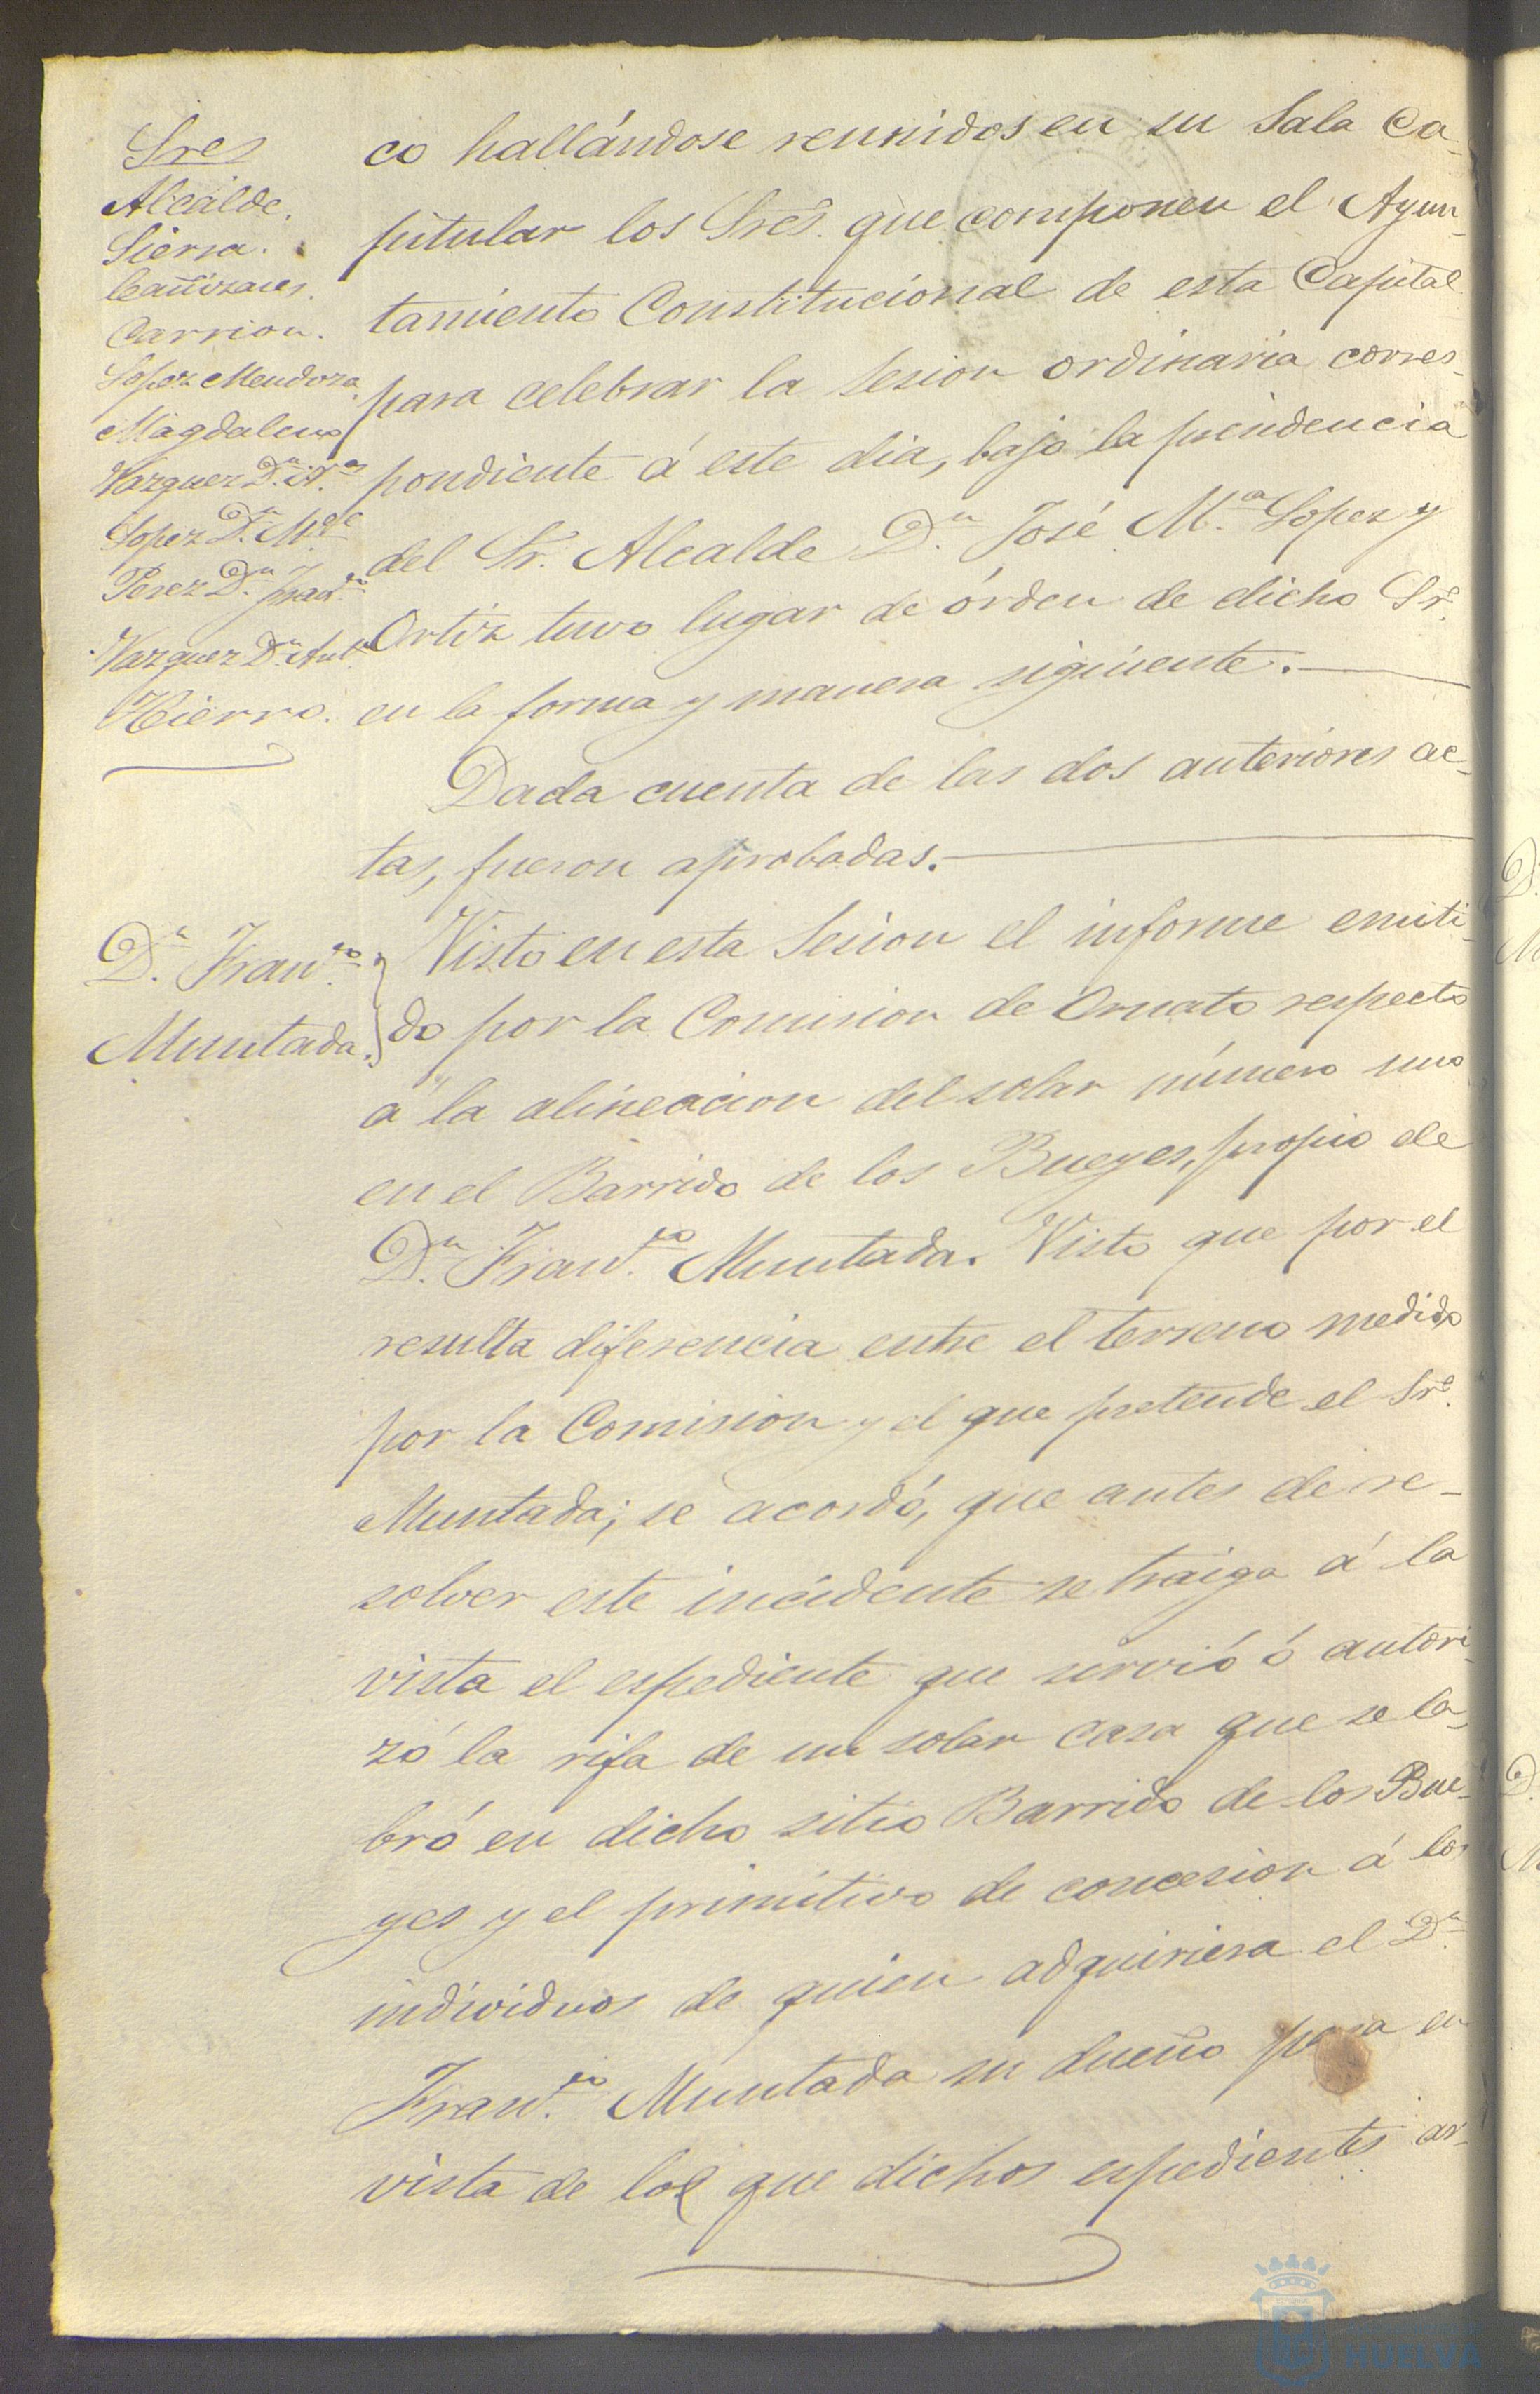 Sres
Alcalde.
Sierra.
Cañizares.
Carrion.
Lopez Mendoza.
Magdaleno
Vazquez D.n N.as
Lopez D.n M.el
Perez D.n Fran.co
Vazquez D.n Ant.o
Hierro.
co hallándose reunidos en su Sala Ca-
pitular los Sres. que componen el Ayun-
tamiento Constitucional de esta Capital
para celebrar la sesion ordinaria corres-
pondiente á este dia, bajo la presidencia
del Sr. Alcalde D.n José M.a Lopez y
Ortiz tuvo lugar de órden de dicho Sr.
en la forma y manera siguiente.
Dada cuenta de las dos anteriores ac-
tas, fueron aprobadas.
D.n Fran.co
Muntada.
Visto en esta Sesion el informe emiti-
do por la Comision de Ornato respecto
á la alineacion del solar número uno
en el Barrido de los Bueyes, propio de
D.n Fran.co Muntada. Visto que por el
resulta diferencia entre el terreno medido
por la Comision y el que pretende el Sr.
Muntada; se acordó, que antes de re-
solver este incidente se traiga á la
vista el espediente que sirvió ó autori-
zó la rifa de un solar casa que se la-
bró en dicho sitio Barrido de los Bue-
yes y el primitivo de concesion á los
individuos de quien adquiriera el D.n
Fran.co Muntada su dueño para en
vista de los que dichos espedientes ar-
HUELVA